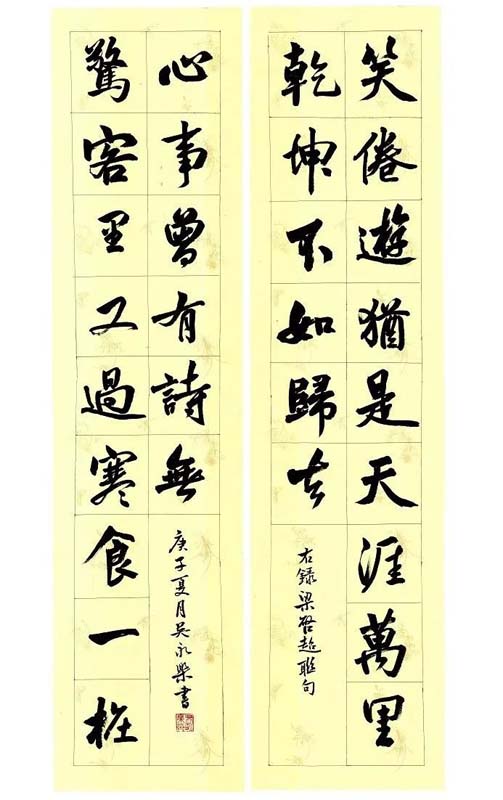 笑倦遊猶是天涯萬里
乾坤不如歸去
右録梁啓超聯句
驚客里又過寒食一桩
心事曾有詩無
庚子夏月吴永樂書